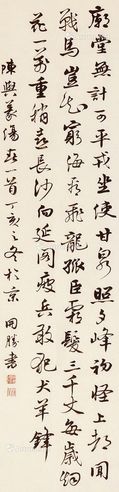 廟堂無計可平戎坐使甘泉照夕峰初怪上都聞
戰馬豈知窮海看飛龍孤臣霜髮三千丈每歲烟
花一萬重稍喜長沙向延閣疲兵敢犯犬羊鋒
陳與義傷春一首丁亥之冬於京 開勝書